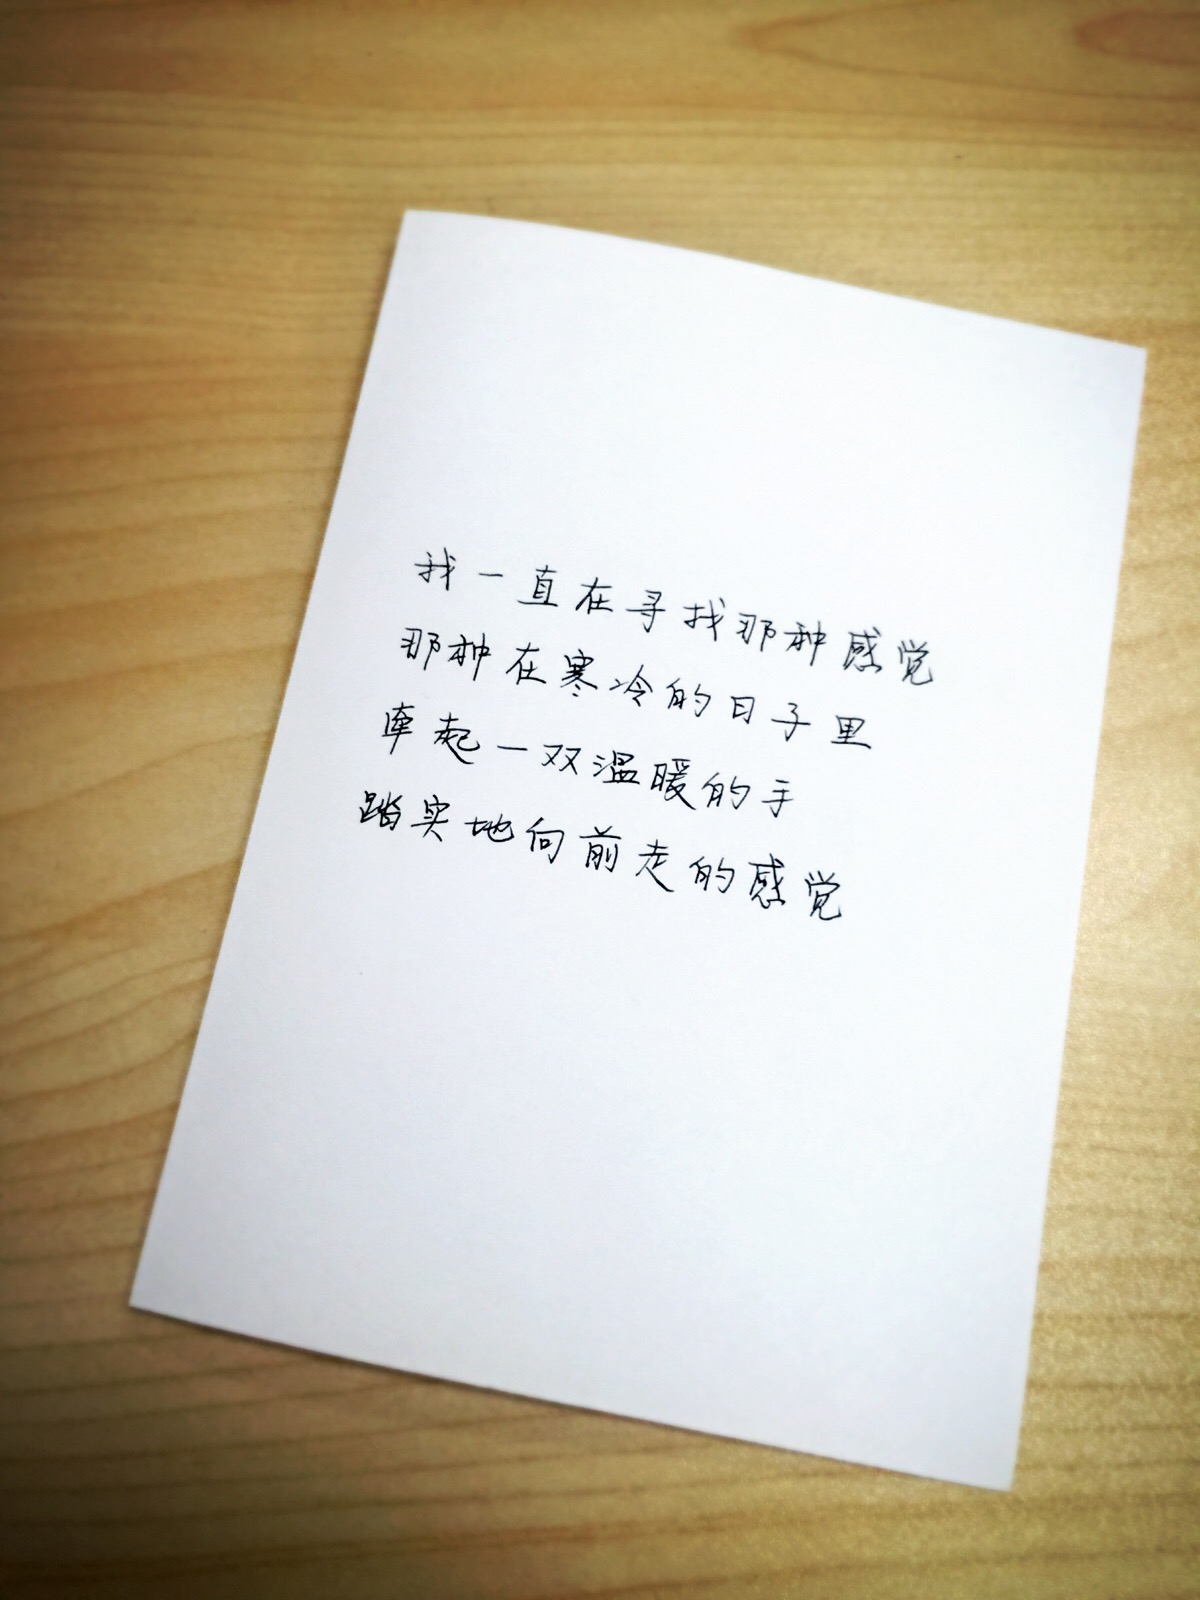 我一直在寻找那种感觉
那种在寒冷的日子里
牵起一双温暖的手
踏实地向前走的感觉